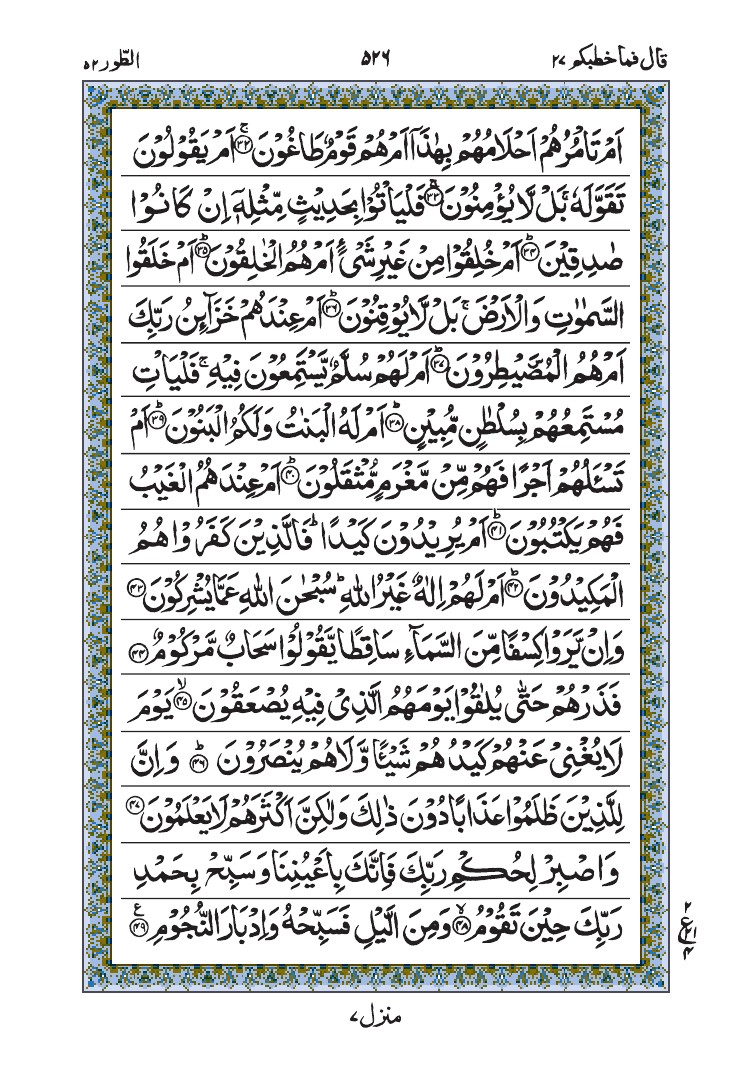 قال فما خطبكم ٢٧
٥٢٦
الطّور ٥٢
اَمۡ تَاۡمُرُهُمۡ اَحۡلَامُهُمۡ بِهٰذَآ اَمۡ هُمۡ قَوۡمٌ طَاغُوۡنَ ۚ‏﴿۳۲﴾ اَمۡ يَقُوۡلُوۡنَ
تَقَوَّلَهٗ ۚ بَلۡ لَّا يُؤۡمِنُوۡنَ‌ ۚ‏﴿۳۳﴾ فَلۡيَاۡتُوۡا بِحَدِيۡثٍ مِّثۡلِهٖۤ اِنۡ كَانُوۡا
صٰدِقِيۡنَؕ‏﴿۳۴﴾ اَمۡ خُلِقُوۡا مِنۡ غَيۡرِ شَىۡءٍ اَمۡ هُمُ الۡخٰلِقُوۡنَؕ‏﴿۳۵﴾ اَمۡ خَلَقُوا
السَّمٰوٰتِ وَالۡاَرۡضَ‌ۚ بَلْ لَّا يُوۡقِنُوۡنَؕ‏﴿۳۶﴾ اَمۡ عِنۡدَهُمۡ خَزَآٮِٕنُ رَبِّكَ
اَمۡ هُمُ الۡمُصَۜيۡطِرُوۡنَؕ‏﴿۳۷﴾ اَمۡ لَهُمۡ سُلَّمٌ يَّسۡتَمِعُوۡنَ فِيۡهِ‌ ۚ فَلۡيَاۡتِ
مُسۡتَمِعُهُمۡ بِسُلۡطٰنٍ مُّبِيۡنٍؕ‏﴿۳۸﴾ اَمۡ لَهُ الۡبَنٰتُ وَلَكُمُ الۡبَنُوۡنَؕ‏﴿۳۹﴾ اَمۡ
تَسۡــَٔلُهُمۡ اَجۡرًا فَهُمۡ مِّنۡ مَّغۡرَمٍ مُّثۡقَلُوۡنَؕ‏﴿۴۰﴾ اَمۡ عِنۡدَهُمُ الۡغَيۡبُ
فَهُمۡ يَكۡتُبُوۡنَؕ‏﴿۴۱﴾ اَمۡ يُرِيۡدُوۡنَ كَيۡدًا‌ؕ فَالَّذِيۡنَ كَفَرُوۡا هُمُ
الۡمَكِيۡدُوۡنَؕ‏﴿۴۲﴾ اَمۡ لَهُمۡ اِلٰهٌ غَيۡرُ اللّٰهِ‌ؕ سُبۡحٰنَ اللّٰهِ عَمَّا يُشۡرِكُوۡنَ‏﴿۴۳﴾
وَاِنۡ يَّرَوۡا كِسۡفًا مِّنَ السَّمَآءِ سَاقِطًا يَّقُوۡلُوۡا سَحَابٌ مَّرۡكُوۡمٌ‏﴿۴۴﴾
فَذَرۡهُمۡ حَتّٰى يُلٰقُوۡا يَوۡمَهُمُ الَّذِىۡ فِيۡهِ يُصۡعَقُوۡنَۙ‏﴿۴۵﴾ يَوۡمَ
لَا يُغۡنِىۡ عَنۡهُمۡ كَيۡدُهُمۡ شَيۡــًٔا وَّلَا هُمۡ يُنۡصَرُوۡنَؕ‏﴿۴۶﴾ وَاِنَّ
لِلَّذِيۡنَ ظَلَمُوۡا عَذَابًا دُوۡنَ ذٰلِكَ وَلٰـكِنَّ اَكۡثَرَهُمۡ لَا يَعۡلَمُوۡنَ‏﴿۴۷﴾
وَاصۡبِرۡ لِحُكۡمِ رَبِّكَ فَاِنَّكَ بِاَعۡيُنِنَا‌ وَسَبِّحۡ بِحَمۡدِ
رَبِّكَ حِيۡنَ تَقُوۡمُۙ‏﴿۴۸﴾ وَمِنَ الَّيۡلِ فَسَبِّحۡهُ وَاِدۡبَارَ النُّجُوۡمِ‏﴿۴۹﴾
٢
ع
٢١
٤
منزل ٧